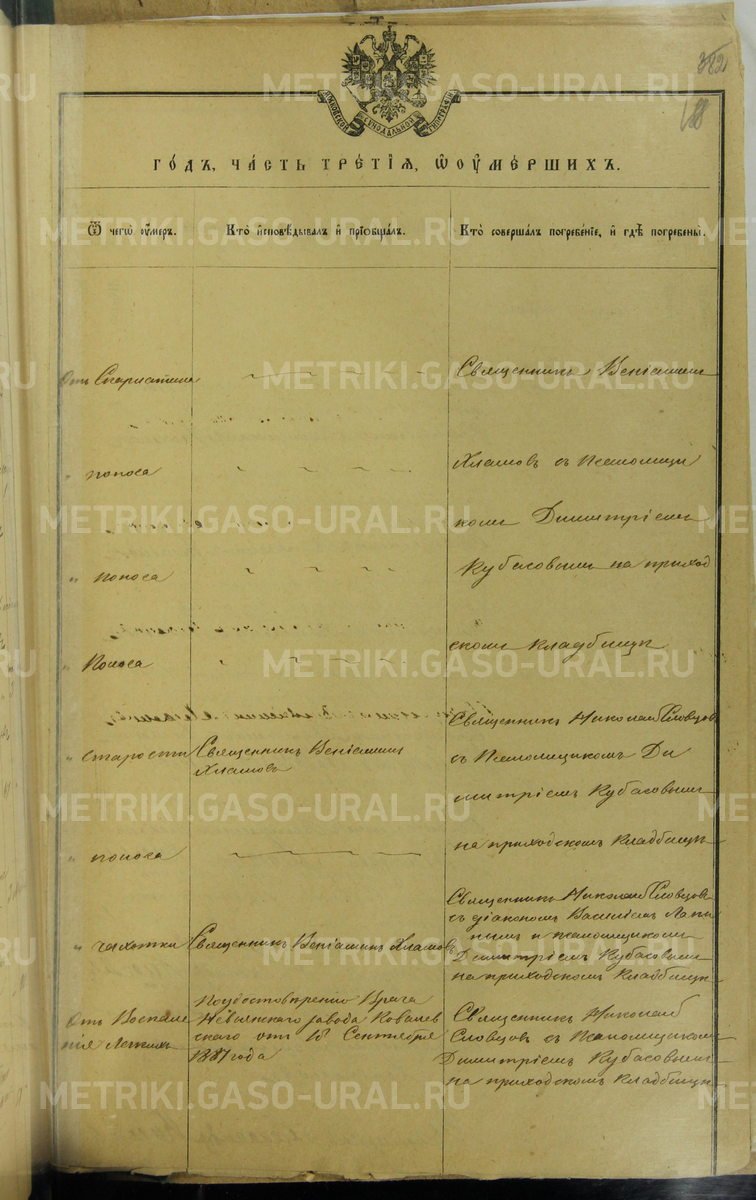 METRIKI.GASO-URAL.RU
МОСКОВСКОЙ СѴНОДАЛЬНОЙ ТИПОГРАФІИ
ГО́ДЪ, ЧА́СТЬ ТРЕ́ТІѦ, Ѡ ОУМЕ́РШИХЪ.
Ѿ чегѡ̀ ᲂу҆́меръ.
Кто̀ и҆сповѣ́дывалъ и҆ прїѡбща́лъ.
Кто̀ соверша́лъ погребе́нїе, и҆ гдѣ̀ погребены̀.
Отъ Скарлатины
Священникъ Веніаминъ
" поноса
Хламовъ съ Псаломщи
комъ Димитріемъ
" поноса
Кубасовымъ на приход
" Поноса
скомъ кладбищѣ
" старости
Священникъ Веніаминъ
Хламовъ
Священникъ Николай Словцовъ
съ Псаломщикомъ Ди
митріемъ Кубасовымъ
" поноса
на приходскомъ кладбищѣ
" чахотки
Священникъ Веніаминъ Хламовъ
Священникъ Николай Словцовъ
съ діакономъ Василіемъ
и псаломщикомъ
Димитріемъ Кубасовымъ
на приходскомъ кладбищѣ
Отъ Воспале
нія Легкихъ
По удостовѣренію Врача
Невьянскаго завода Ковалев
скаго отъ Сентября
года
Священникъ Николай
Словцовъ съ Псаломщикомъ
Димитріемъ Кубасовымъ
на приходскомъ кладбищѣ